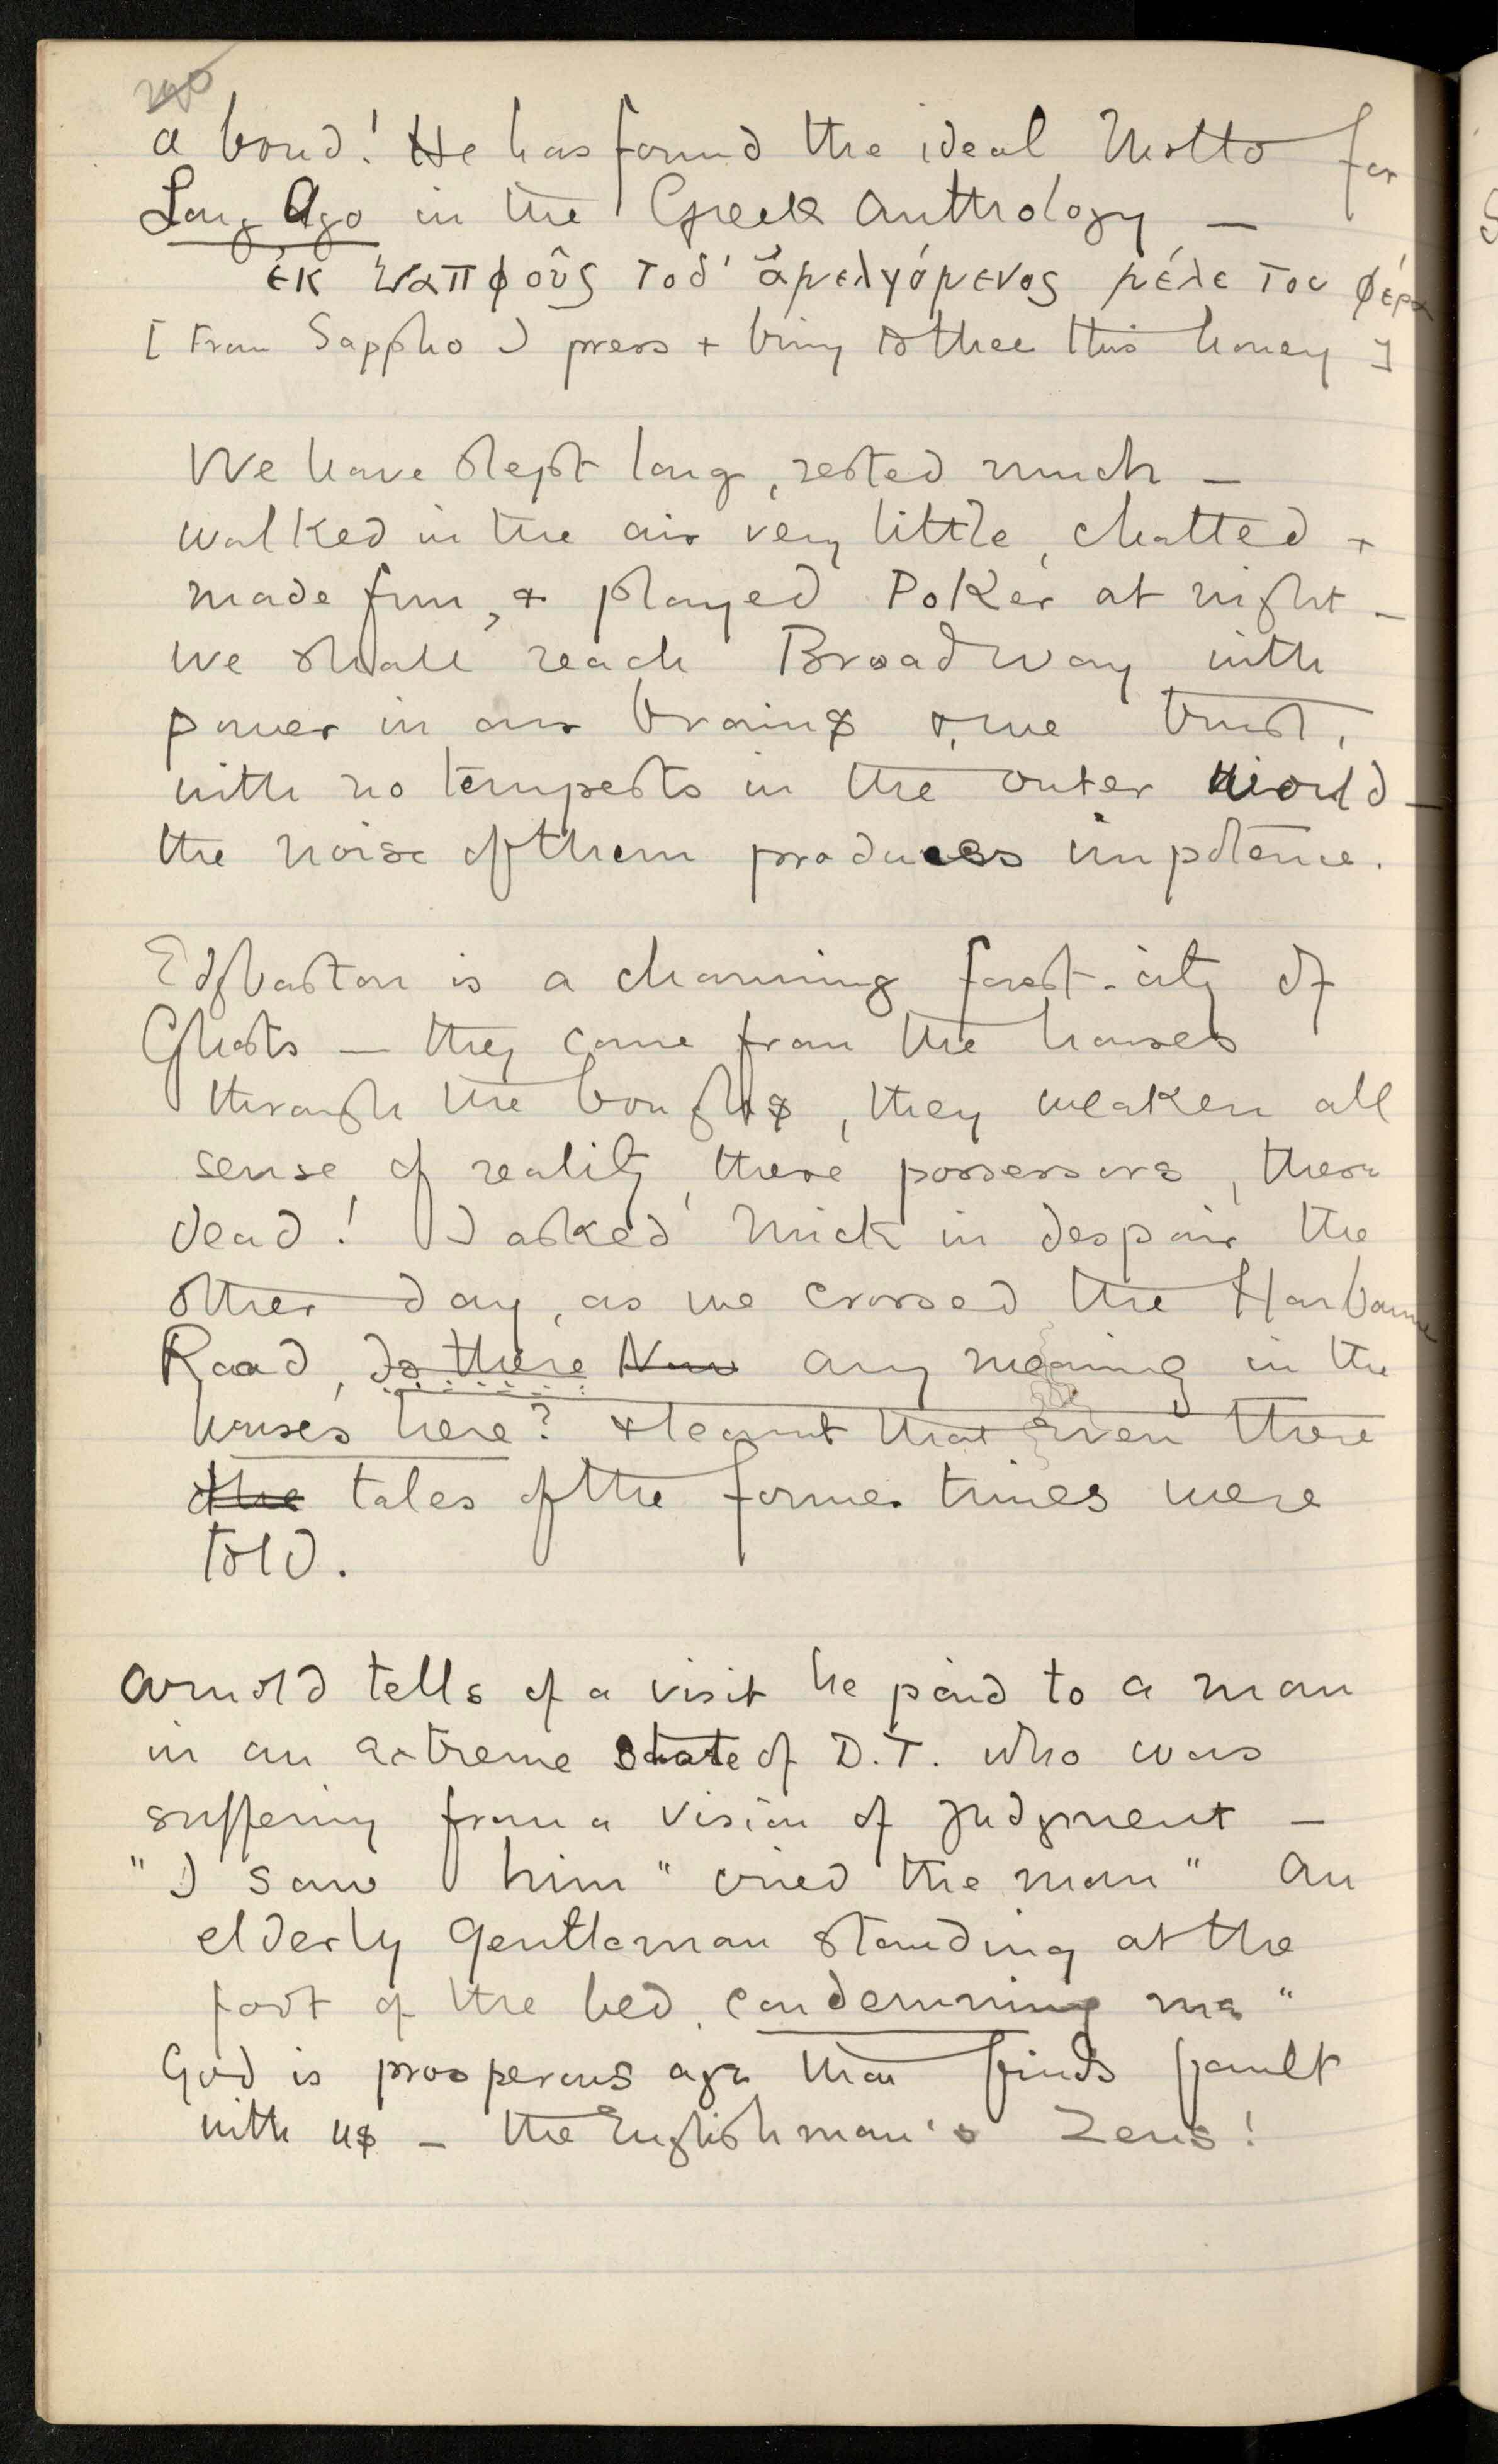 a bond! He has found the ideal Motto for
Long Ago in the Greek Anthology —
ἐκ Σαπφοῦς τοδ' ἀμελγόμενος μέλι τοι φέρω
[From Sappho I press + bring to thee this honey]
We have slept long, rested much —
walked in the air very little, chatted +
made fun, + played Poker at night —
We shall reach Broadway with
power in our brains +, we trust,
with no tempests in the outer world —
the noise of them produces impotence.
Edgbaston is a charming forest-city of
Ghosts — they come from the houses
through the boughs, they weaken all
sense of reality, these possessors, these
dead! I asked Mick in despair the
other day, as we crossed the Harborne
Road, Is there Now any meaning in the
houses here? + learnt that even there
the tales of the former times were
told.
Arnold tells of a visit he paid to a man
in an extreme state of D.T. who was
suffering from a vision of judgment —
"I saw him" cried the man" An
elderly gentleman standing at the
foot of the bed, condemning me"
God is prosperous age that finds fault
with us — the Englishman's Zeus!